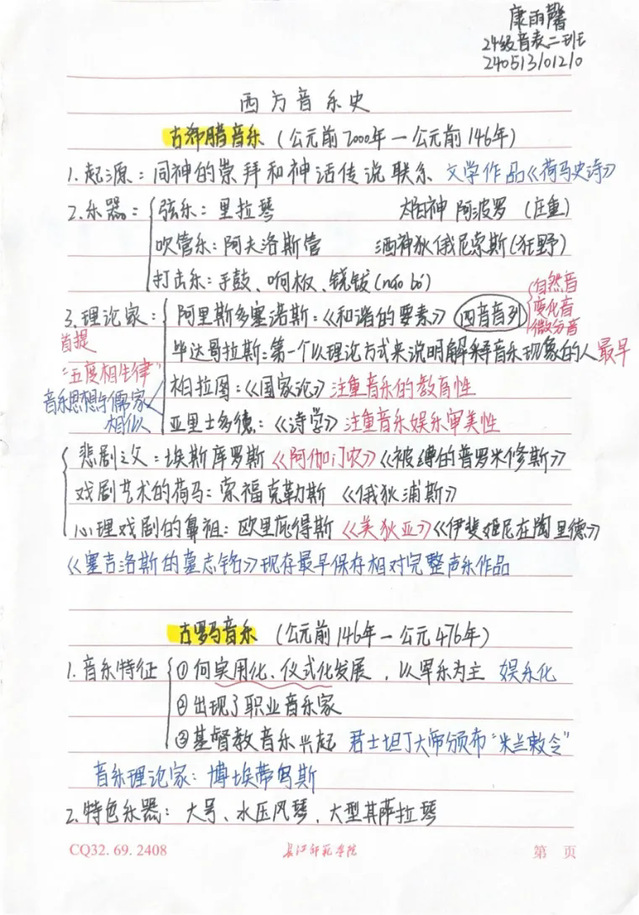 康雨馨
24级音表二班
240513101210
西方音乐史
古希腊音乐（公元前2000年—公元前146年）
1.起源：同神的崇拜和神话传说联系 文学作品《荷马史诗》
2.乐器：弦乐：里拉琴 太阳神 阿波罗（庄重）
吹管乐：阿夫洛斯管 酒神狄俄尼索斯（狂野）
打击乐：手鼓、响板、铙钹（náo bó）
3.理论家：阿里斯多塞诺斯：《和谐的要素》 四音音列 自然音 变化音 微分音
首提
"五度相生律" 毕达哥拉斯：第一个以理论方式来说明解释音乐现象的人 最早
音乐思想与儒家相似 柏拉图：《国家论》注重音乐的教育性
亚里士多德：《诗学》注重音乐娱乐审美性
悲剧之父：埃斯库罗斯《阿伽门农》《被缚的普罗米修斯》
戏剧艺术的荷马：索福克勒斯 《俄狄浦斯》
心理戏剧的鼻祖：欧里庇得斯《美狄亚》《伊斐姬尼在陶里德》
《塞吉洛斯的墓志铭》现存最早保存相对完整声乐作品
古罗马音乐（公元前146年—公元476年）
1.音乐特征 ①向实用化、仪式化发展，以军乐为主 娱乐化
②出现了职业音乐家
③基督教音乐兴起 君士坦丁大帝颁布"米兰敕令"
音乐理论家：博埃蒂乌斯
2.特色乐器：大号、水压风琴、大型基萨拉琴
CQ32.69.2408 长江师范学院 第 页